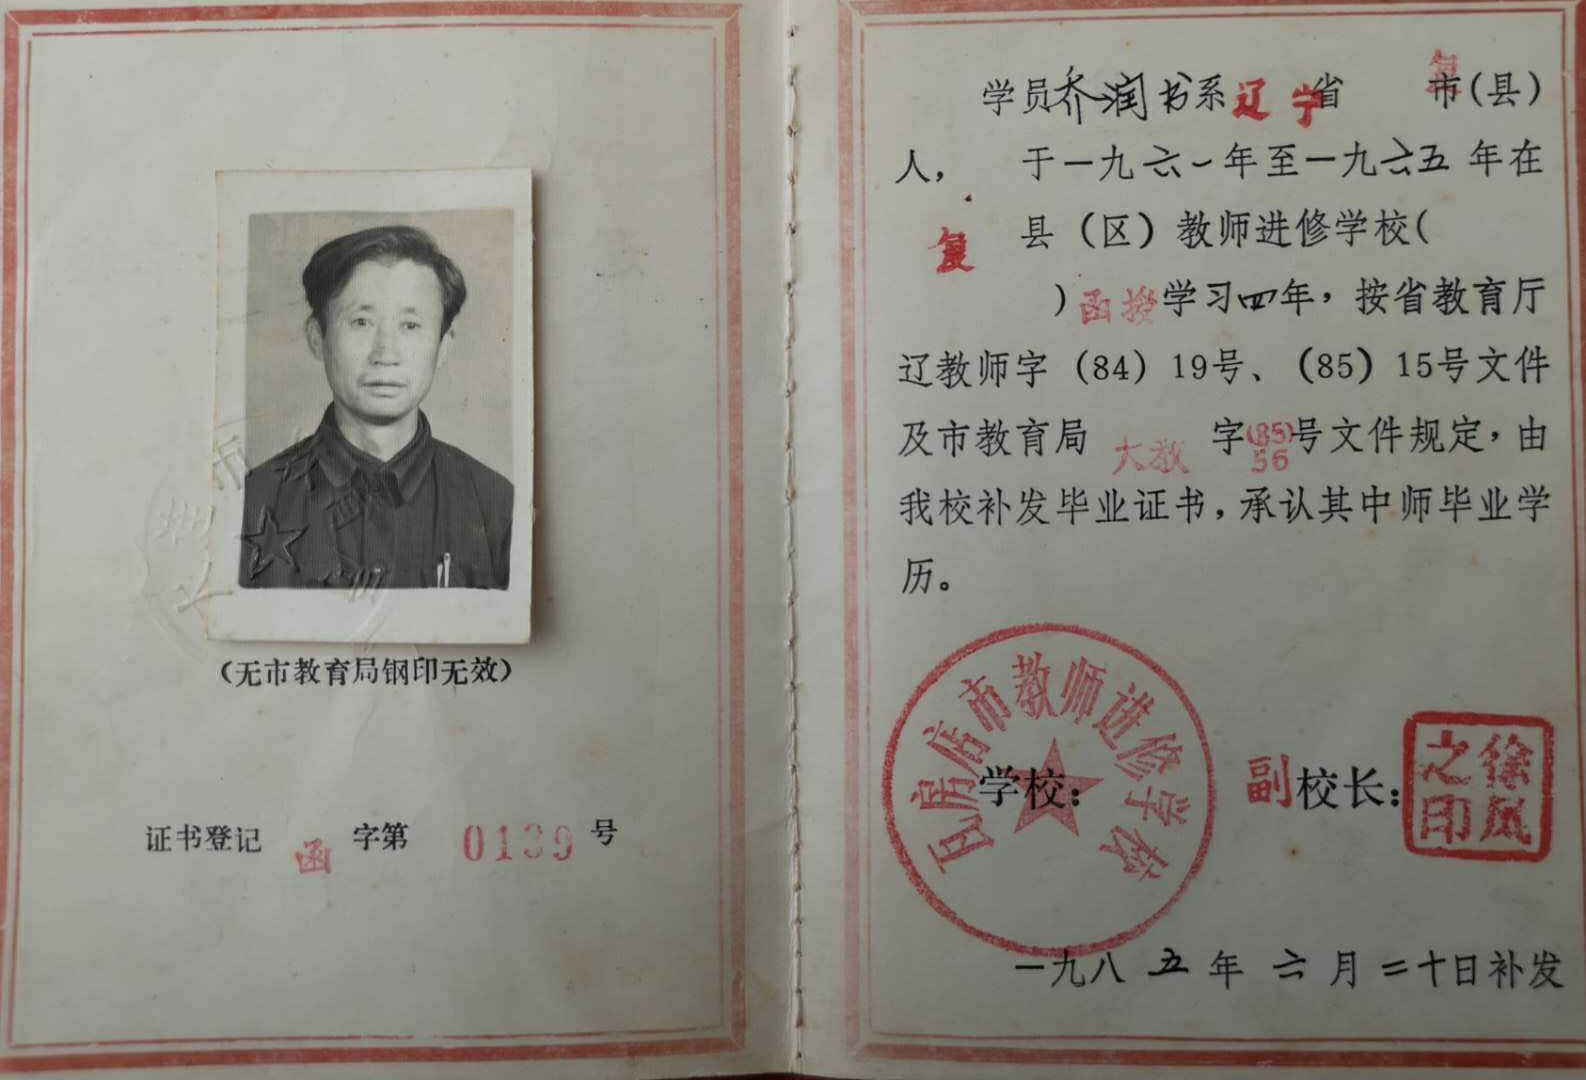 （无市教育局钢印无效）
证书登记 函 字第 0139 号
学员乔润书系辽宁省 复 市（县）
人， 于一九六一年至一九六五年在
复 县（区）教师进修学校（
）函授学习四年，按省教育厅
辽教师字（84）19号、（85）15号文件
及市教育局 大教 字(85)56号文件规定，由
我校补发毕业证书，承认其中师毕业学
历。
瓦房店市教师进修学校
学校：
副校长：
徐凤之印
一九八五年六月二十日补发